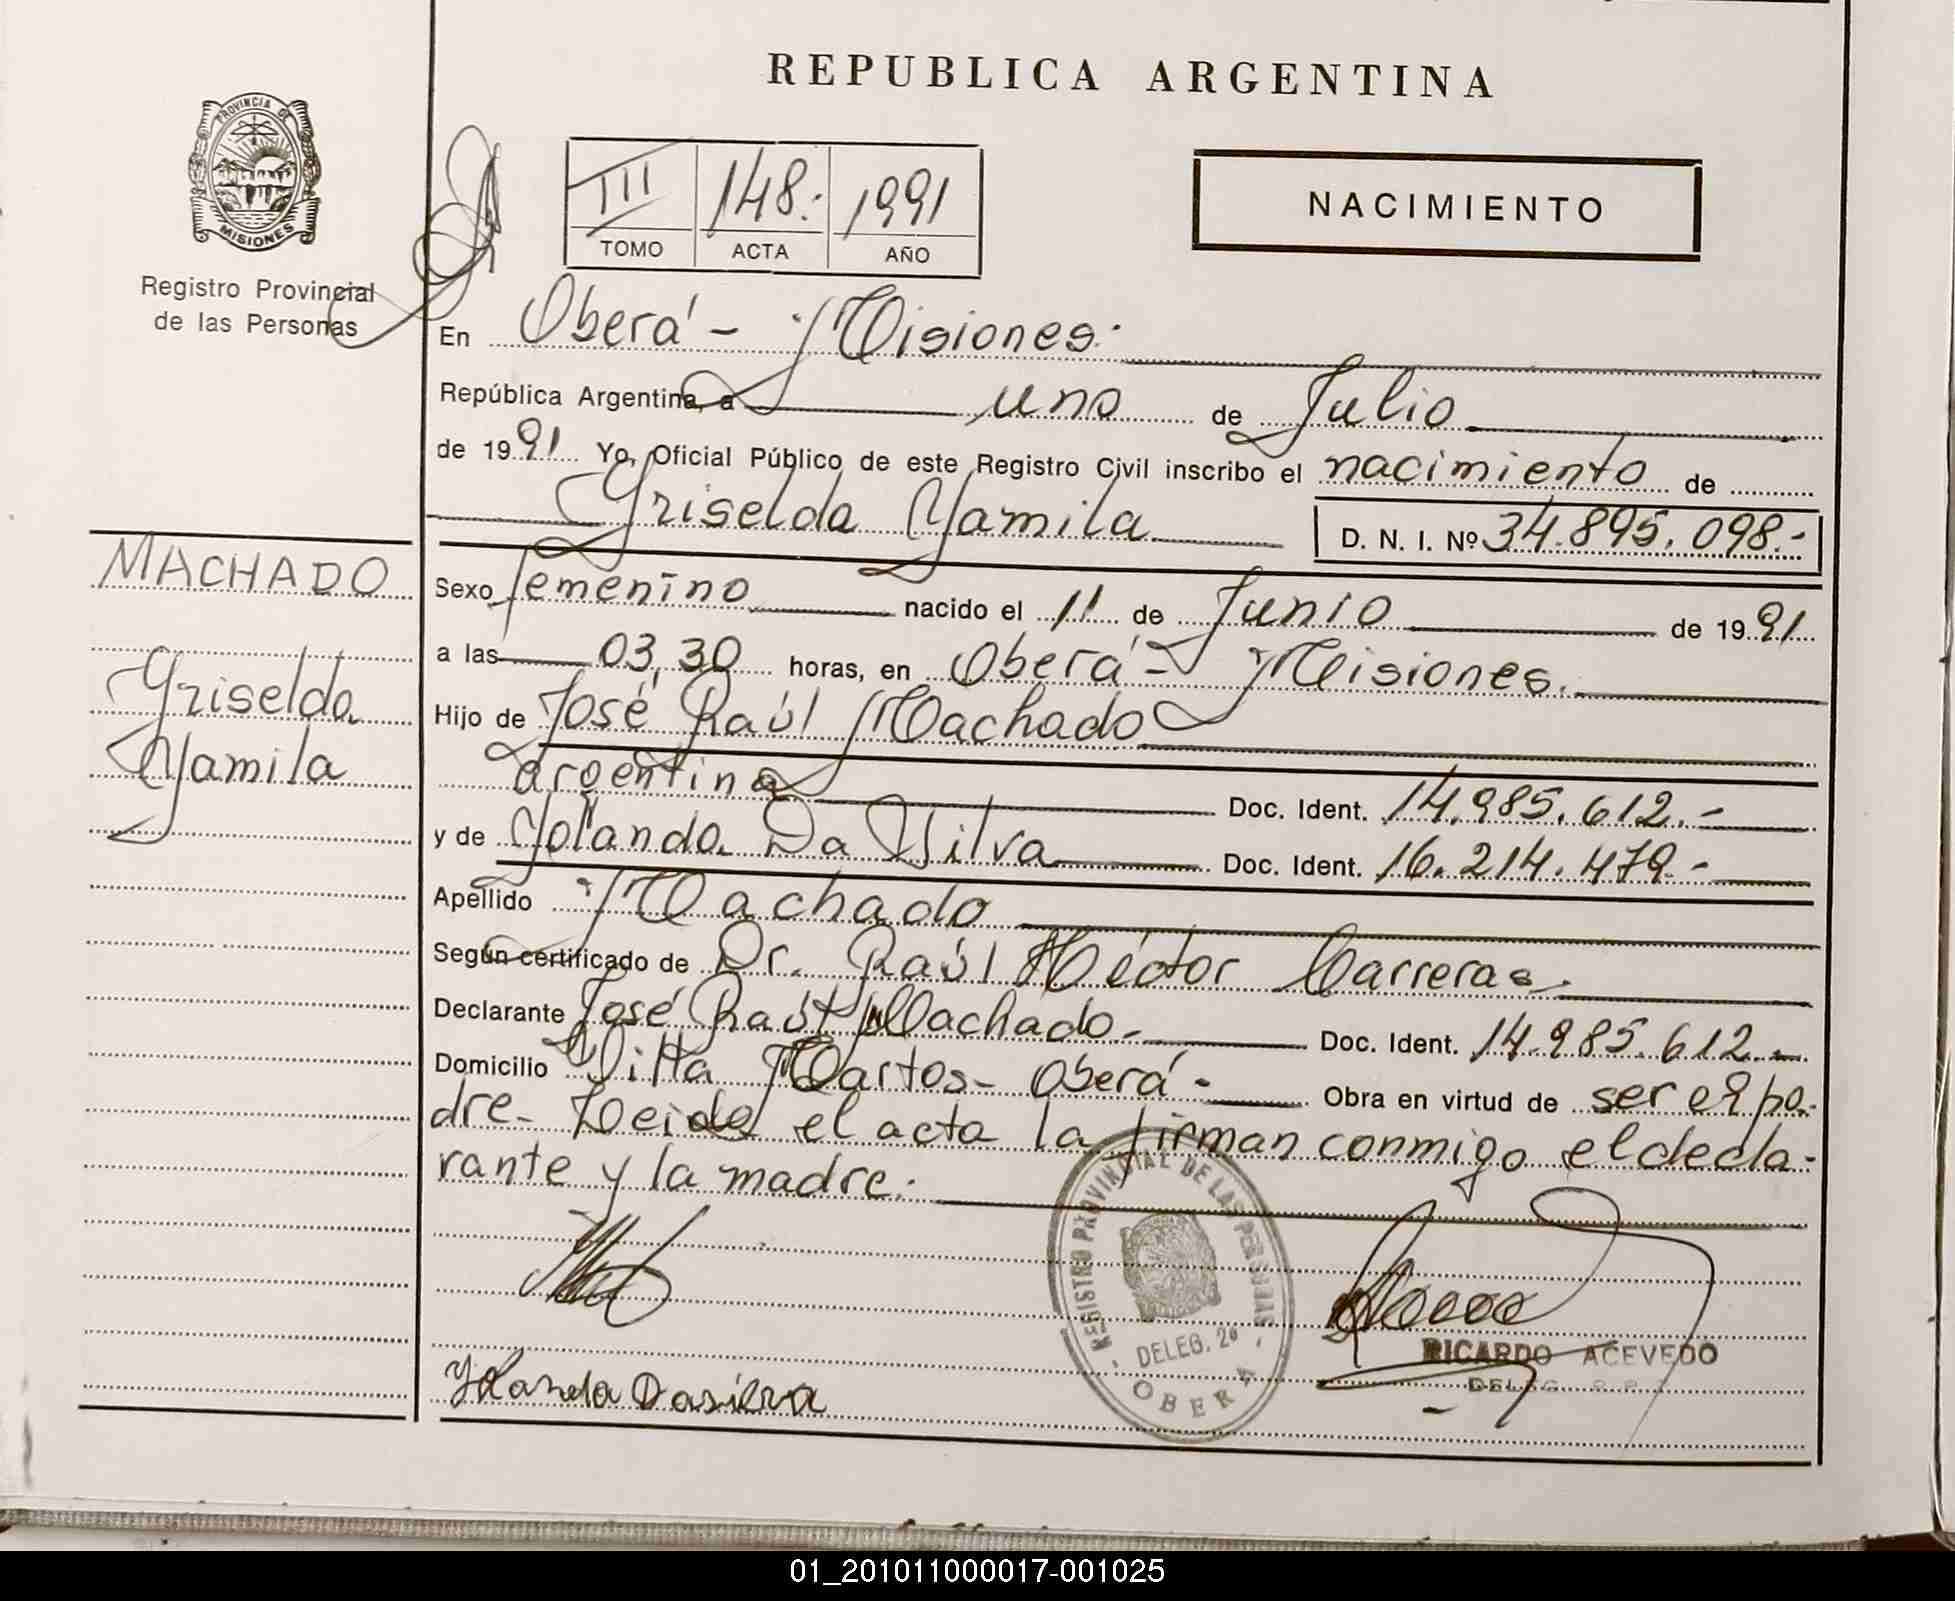 REPUBLICA ARGENTINA
PROVINCIA DE
MISIONES
Registro Provincial
de las Personas
III 148.- 1991
TOMO ACTA AÑO
NACIMIENTO
En Oberá - Misiones.
República Argentina, a uno de Julio
de 1991. Yo, Oficial Público de este Registro Civil inscribo el nacimiento de
Griselda Yamila D. N. I. Nº 34.895.098.-
MACHADO
Griselda
Yamila
Sexo femenino nacido el 11 de Junio de 1991
a las 03,30 horas, en Oberá - Misiones.
Hijo de José Raúl Machado
argentina Doc. Ident. 14.985.612.-
y de Yolanda Da Silva Doc. Ident. 16.214.479.-
Apellido Machado
Según certificado de Dr. Raúl Héctor Carreras.
Declarante José Raúl Machado.- Doc. Ident. 14.985.612.-
Domicilio Villa Martos - Oberá.- Obra en virtud de ser el pa-
dre. Leida el acta la firman conmigo el decla-
rante y la madre.-
REGISTRO PROVINCIAL DE LAS PERSONAS
DELEG. 26
OBERA
RICARDO ACEVEDO
Yolanda Dasilva
01_201011000017-001025